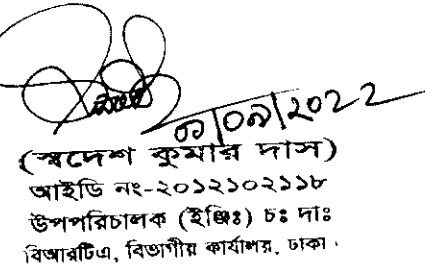 ০১/০৯/২০২২
(স্বদেশ কুমার দাস)
আইডি নং-২০১২১০২১১৮
উপপরিচালক (ইঞ্জিঃ) চঃ দাঃ
বিআরটিএ, বিভাগীয় কার্যালয়, ঢাকা।